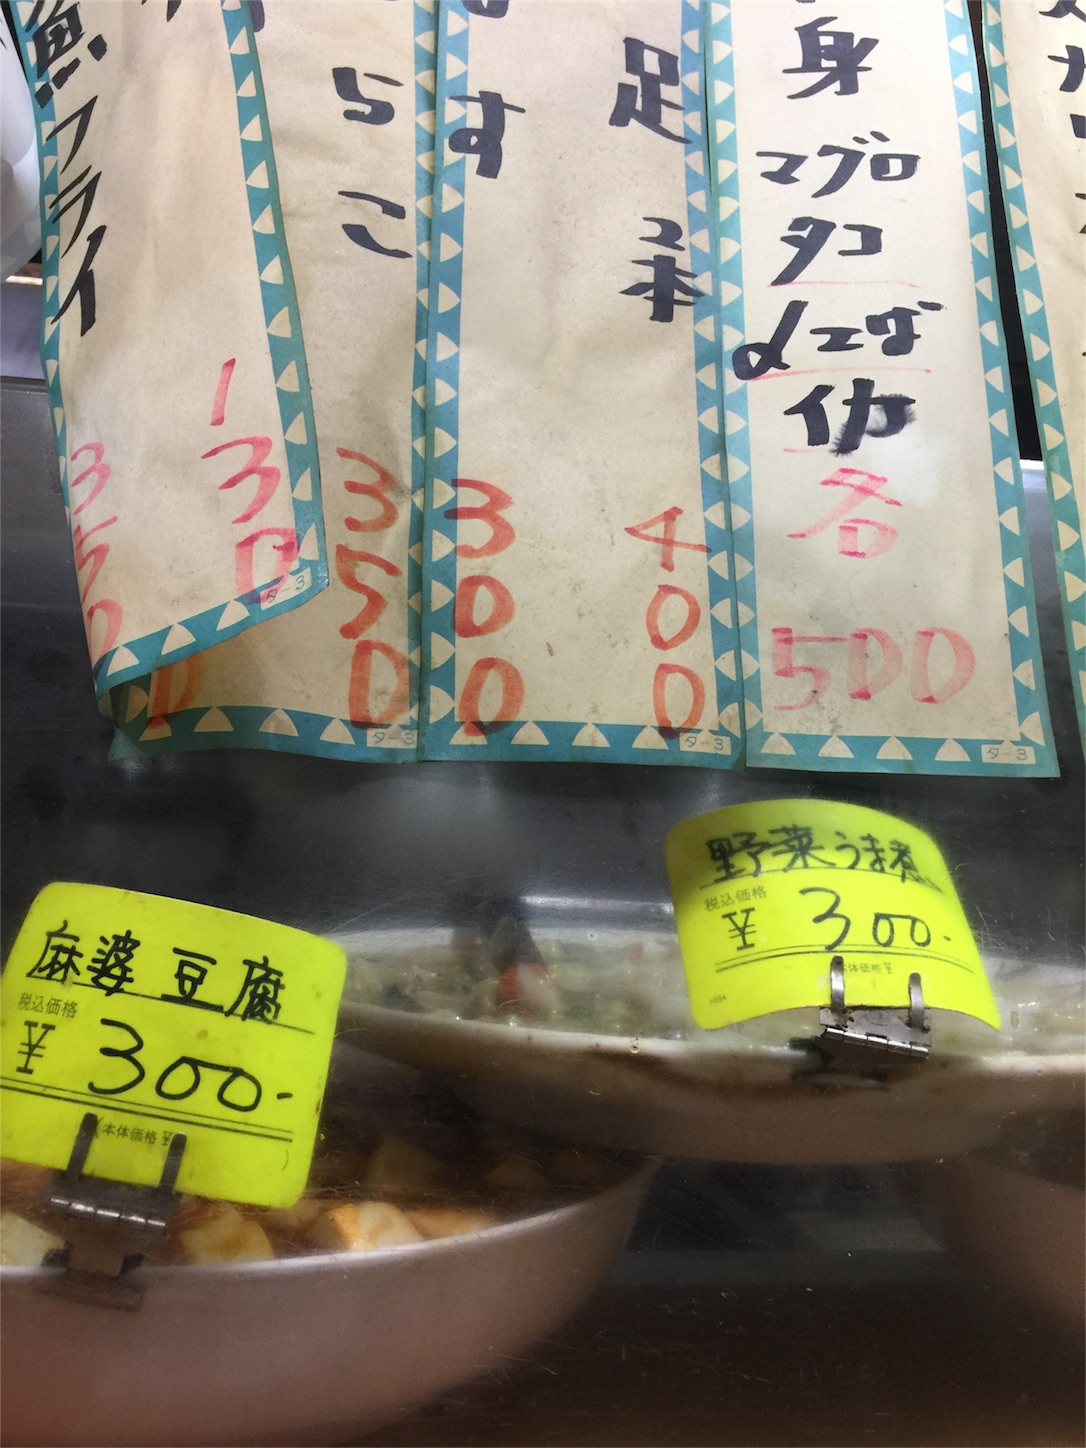 身
マグロ
タコ
〆エサバ
イカ
各
500
足
2本
400
す
300
らこ
350
魚フライ
350
130
タ-3
タ-3
タ-3
タ-3
野菜うま煮
税込価格
¥ 300.
本体価格 ¥
麻婆豆腐
税込価格
¥ 300.
(本体価格 ¥ )